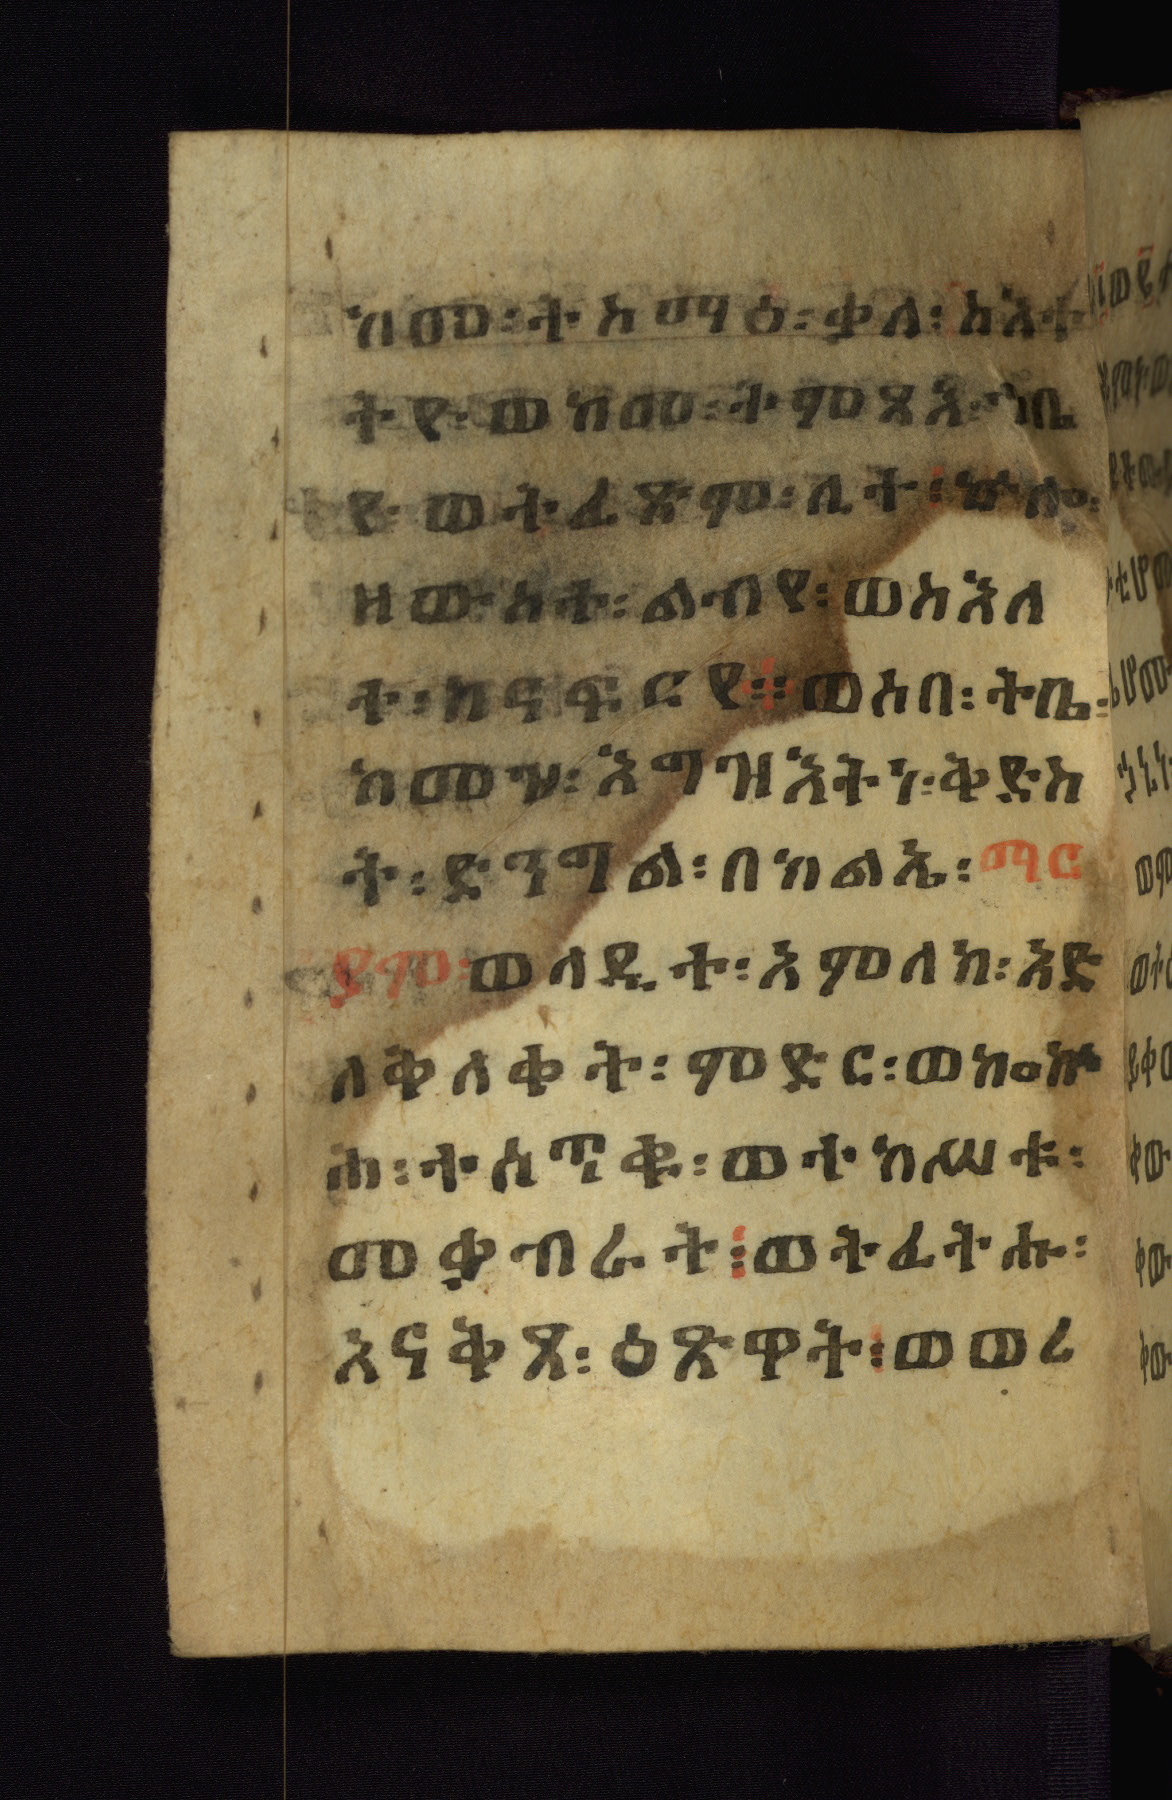 ከመ፡ትስማዕ፡ቃለ፡ስእለ
ትየ፡ወከመ፡ትምጻእ፡ኀቤ
የ፡ወትፈጽም፡ሊተ፡ኵሎ፡
ዘውስተ፡ልብየ፡ወስእለ
ተ፡ከናፍርየ፡፡ወሶበ፡ትቤ፡
ከመዝ፡እግዝእትነ፡ቅድስ
ት፡ድንግል፡በክልኤ፡ማር
ያም፡ወላዲተ፡አምላክ፡አድ
ለቅለቀት፡ምድር፡ወኰኵ
ሕ፡ተሰጥቁ፡ወተከሥቱ፡
መቃብራት፡ወትፈትሑ፡
አናቅጸ፡ዕጽዋት፡ወወረ